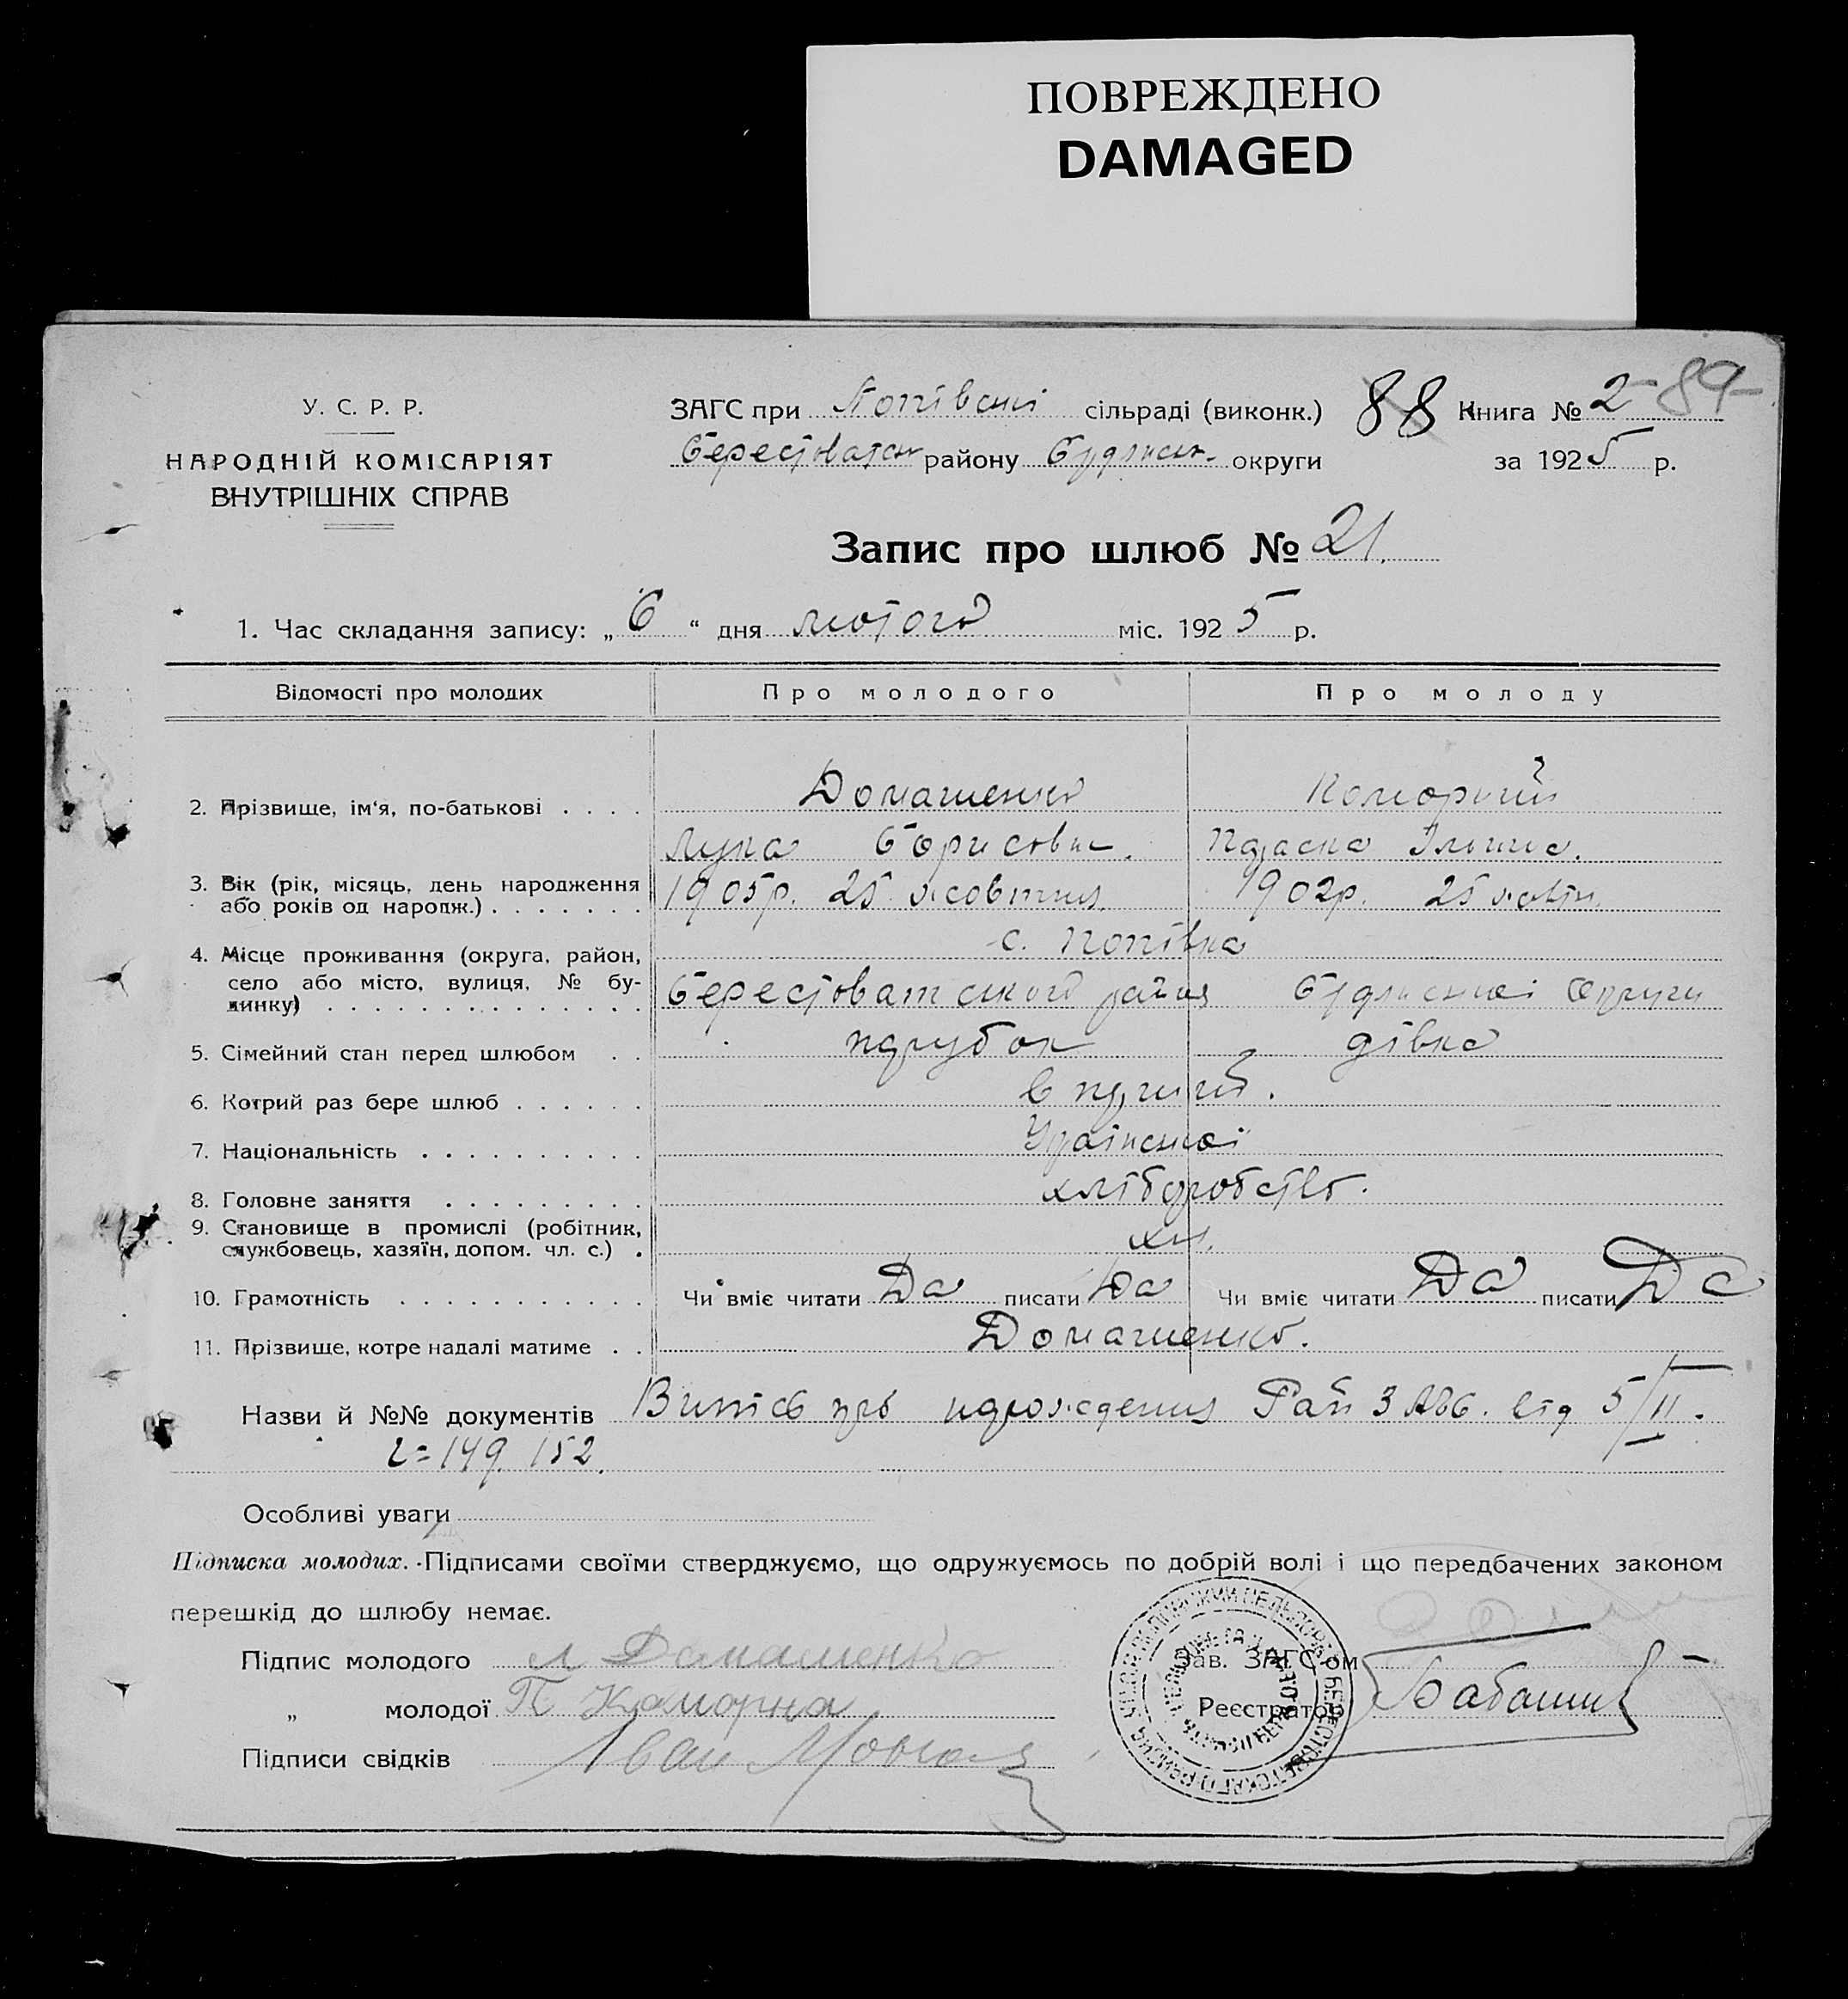 ПОВРЕЖДЕНО
DAMAGED
У. С. Р. Р.
НАРОДНІЙ КОМІСАРІЯТ
ВНУТРІШНІХ СПРАВ
ЗАГС при Попівські сільраді (виконк.) 88 Книга № 2 89
Берестоватськ району округи за 1925 р.
Запис про шлюб № 21.
1. Час складання запису: „6“ дня лютого міс. 1925 р.
Відомості про молодих Про молодого Про молоду
2. Прізвище, ім'я, по-батькові . . . . Домашенко
Лука Борисович.
3. Вік (рік, місяць, день народження або років од народж.) . . . . . . . 1905р. 25 жовтня 1902р. 25 жовтн.
4. Місце проживання (округа, район, село або місто, вулиця, № будинку) . . . . . . . . . . . . . с. Попівка
Берестоватського району округи
5. Сімейний стан перед шлюбом . . парубок дівка
6. Котрий раз бере шлюб . . . . . . в перший.
7. Національність . . . . . . . . . . Української
8. Головне заняття . . . . . . . . . хліборобство.
9. Становище в промислі (робітник, службовець, хазяїн, допом. чл. с.) .
10. Грамотність . . . . . . . . . . . Чи вміє читати Да писати Да Чи вміє читати Да писати Да
11. Прізвище, котре надалі матиме . . Домашенко.
Назви й №№ документів від 5/II.
149. 152.
Особливі уваги
Підписка молодих. Підписами своїми стверджуємо, що одружуємось по добрій волі і що передбачених законом
перешкід до шлюбу немає.
Підпис молодого Л Домашенко Зав. ЗАГС-ом
„ молодої П Коморна Реєстратор
Підписи свідків Іван